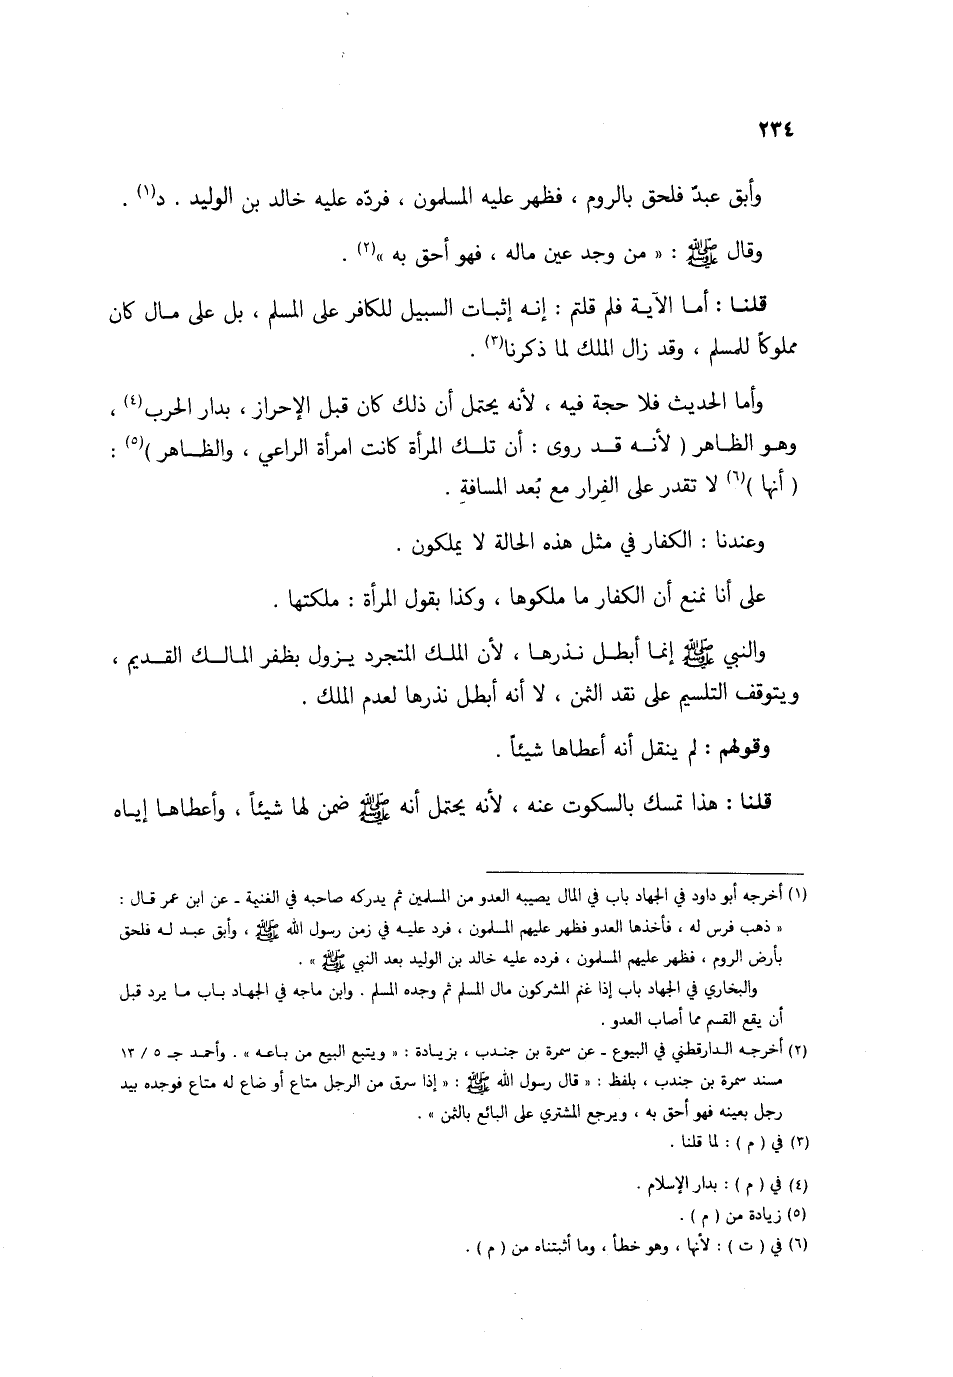 ٢٣٤
وأبق عبدٌ فلحق بالروم ، فظهر عليه المسلمون ، فردّه عليه خالد بن الوليد . د(١) .
وقال ﷺ : « من وجد عين ماله ، فهو أحق به »(٢) .
قلنـا : أمـا الآيـة فلم قلتم : إنـه إثبـات السبيل للكافر على المسلم ، بل على مـال كان
مملوكاً للمسلم ، وقد زال الملك لما ذكرنا(٣) .
وأما الحديث فلا حجة فيه ، لأنه يحتمل أن ذلك كان قبل الإحراز ، بدار الحرب(٤) ،
وهـو الظـاهر ( لأنـه قـد روى : أن تلـك المرأة كانت امرأة الراعي ، والظـاهر )(٥) :
( أنها )(٦) لا تقدر على الفِرار مع بُعد المسافةِ .
وعندنا : الكفار في مثل هذه الحالة لا يملكون .
على أنا نمنع أن الكفار ما ملكوها ، وكذا بقول المرأة : ملكتها .
والنبي ﷺ إنمـا أبطـل نـذرهـا ، لأن الملـك المتجرد يـزول بظفر المـالـك القـديم ،
ويتوقف التلسيم على نقد الثمن ، لا أنه أبطل نذرها لعدم الملك .
وقولهم : لم ينقل أنه أعطاها شيئاً .
قلنا : هذا تمسك بالسكوت عنه ، لأنه يحتمل أنه ﷺ ضمن لها شيئاً ، وأعطاهـا إيـاه
(١) أخرجه أبو داود في الجهاد باب في المال يصيبه العدو من المسلمين ثم يدركه صاحبه في الغنيمة ـ عن ابن عمر قـال :
« ذهب فرس له ، فأخذها العدو فظهر عليهم المسلمون ، فرد عليـه في زمن رسول الله ﷺ ، وأبق عبـد لـه فلحق
بأرض الروم ، فظهر عليهم المسلمون ، فرده عليه خالد بن الوليد بعد النبي ﷺ » .
والبخاري في الجهاد باب إذا غنم المشركون مال المسلم ثم وجده المسلم . وابن ماجه في الجهـاد بـاب مـا يرد قبل
أن يقع القسم مما أصاب العدو .
(٢) أخرجـه الـدارقطني في البيوع ـ عن سمرة بن جنـدب ، بزيـادة : « ويتبع البيع من بـاعـه » . وأحمـد جـ ٥ / ١٣
مسند سمرة بن جندب ، بلفظ : « قال رسول الله ﷺ : « إذا سرق من الرجل متاع أو ضاع له متاع فوجده بيد
رجل بعينه فهو أحق به ، ويرجع المشتري على البائع بالثمن » .
(٣) في ( م ) : لما قلنا .
(٤) في ( م ) : بدار الإسلام .
(٥) زيادة من ( م ) .
(٦) في ( ت ) : لأنها ، وهو خطأ ، وما أثبتناه من ( م ) .